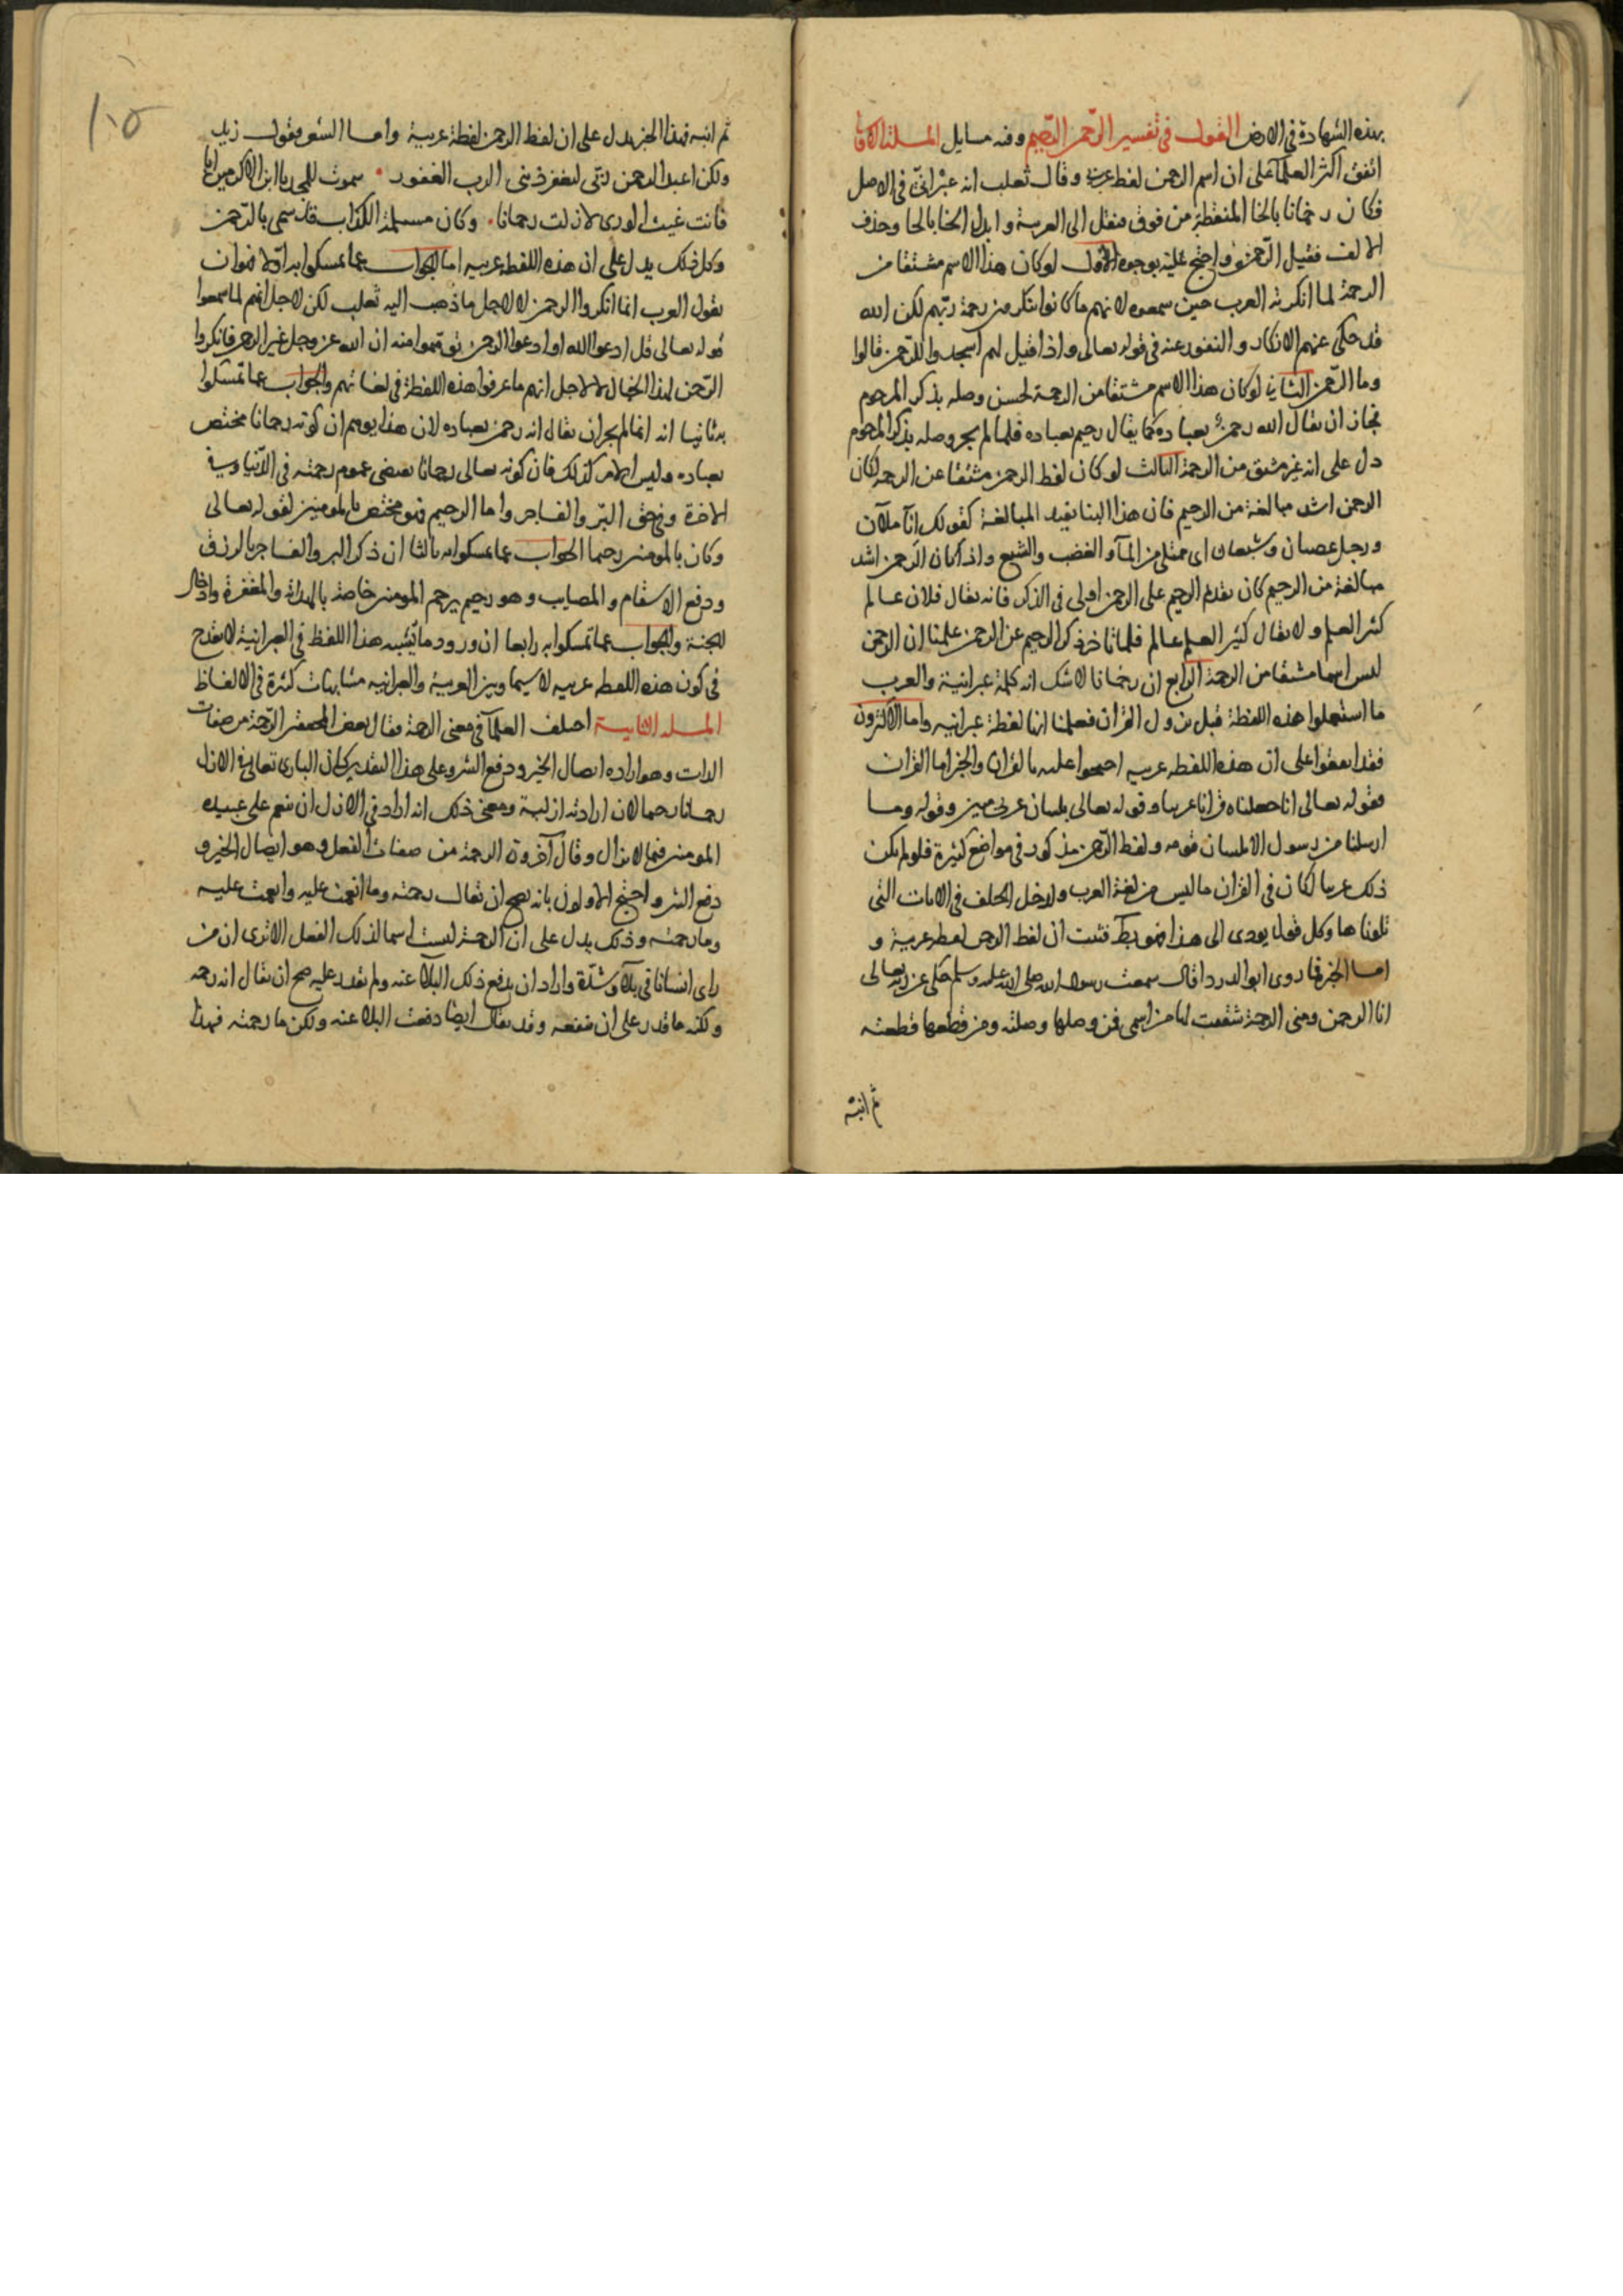 بهذه الشهادة فى الارض القول فى تفسير الرحمن الرحيم وفيه مسايل المسلة الاولى
اتفق اكثر العلمآء على ان اسم الرحمن لفظ عربى وقال ثعلب انه عبرانىّ فى الاصل
فكان رخمانا بالخا المنقطة من فوق فنقل الى العربية وابدل الخا بالحا وحذف
الالف فقيل الرّحمن واحتج عليه بوجوه الاول لو كان هذا الاسم مشتقا من
الرحمة لما انكرته العرب حين سمعوه لانهم ما كانوا ينكرون رحمة ربّهم لكن الله
قد حكى عنهم الانكار والنفور عنه فى قوله تعالى واذا قيل لهم اسجدوا للرّحمن قالوا
وما الرّحمن الثانى لو كان هذا الاسم مشتقا من الرحمة لحسن وصله بذكر المرحوم
فجاز ان يقال الله رحمن بعباده كما يقال رحيم بعباده فلما لم يجز وصله بذكر المرحوم
دل على انه غير مشتق من الرحمة الثالث لو كان لفظ الرحمن مشتقا عن الرحمه لكان
الرحمن اشد مبالغة من الرحيم فان هذا البنا يفيد المبالغة كقولك انآ ملآن
ورجل غضبان وشبعان اى ممتلى من المآ والغضب والشبع واذا كان الرحمن اشد
مبالغة من الرحيم كان تقديم الرحيم على الرحمن اولى فى الذكر فانه يقال فلان عالم
كثير العلم ولا يقال كثير العلم عالم فلما تاخر ذكر الرحيم عن الرحمن علمنا ان الرحمن
ليس اسما مشتقا من الرحمة الرابع ان رخمانا لا شك انه كلمة عبرانية والعرب
ما استعملوا هذه اللفظة قبل نزول القران فعلمنا انها لفظة عبرانيه واما الاكثرون
فقد اتفقوا على ان هذه اللفظه عربيه احتجوا عليه بالقران والخبر اما القران
فقوله تعالى انا جعلناه قرانا عربيا وقوله تعالى بلسان عربى مبين وقوله وما
ارسلنا من رسول الا بلسان قومه ولفظ الرّحمن مذكور فى مواضع كثيرة فلو لم يكن
ذلك عربيا لكان فى القران ما ليس من لغة العرب ولدخل الخلف فى الايات التى
تلوناها وكل قول يودى الى هذا فهو باطل فثبت ان لفظ الرحمن لفظه عربية و
اما الخبر فما روى ابو الدردا قال سمعت رسول الله صلى الله عليه وسلم حكى عن ربه تعالى
انا الرحمن وهى الرحمة شققت لها من اسمى فمن وصلها وصلته ومن قطعها قطعته
ثم ابته
١٠٥
ثم ابته فهذا الخبر يدل على ان لفظ الرحمن لفظة عربية واما الشعر فقول زيد
ولكن اعبد الرحمن ربّى ليغفر ذنبى الرب الغفور • سموت للمجد يا ابن الاكرمين ابا
فانت غيث الورى لا زلت رحمانا • وكان مسيلمة الكذاب قد سمى بالرّحمن
وكل ذلك يدل على ان هذه اللفظه عربيه اما الجواب عما تمسكوا به اوّلا فهو ان
نقول العرب انما انكروا الرحمن لا لاجل ما ذهب اليه ثعلب لكن لاجل انهم لما سمعوا
قوله تعالى قل ادعوا الله او ادعوا الرحمن توهموا منه ان الله عز وجل غير الرحمن فانكروا
الرّحمن لهذا الخيال لا لاجل انهم ما عرفوا هذه اللفظة فى لغاتهم والجواب عما تمسكوا
به ثانيا انه انما لم يجز ان يقال انه رحمن بعباده لان هذا يوهم ان كونه رحمانا مختص
بعباده وليس الامر كذلك فان كونه تعالى رحمانا يقتضى عموم رحمته فى الدّنيا وفى
الاخرة وفى حق البرّ والفاجر واما الرحيم فهو مختص بالمومنين لقوله تعالى
وكان بالمومنين رحيما الجواب عما تمسكوا به ثالثا ان ذكر البر والفاجر بالرزق
ودفع الاسقام والمصايب وهو رحيم يرحم المومنين خاصة بالهداية والمغفرة وادخال
الجنة والجواب عما تمسكوا به رابعا ان ورود ما يشبه هذا اللفظ فى العبرانية لا يقدح
فى كون هذه اللفظه عربيه لا سيما وبين العربية والعبرانيه مشابهات كثيرة فى الالفاظ
المسله الثانية اختلف العلمآ فى معنى الرحمة فقال بعض المحققين الرّحمة من صفات
الذات وهو اراده ايصال الخير ودفع الشر وعلى هذا التقدير كان البارى تعالى فى الازل
رحمانا رحيما لان ارادته ازلية ومعنى ذلك انه اراد فى الازل ان ينعم على عبيده
المومنين فيما لا يزال وقال آخرون الرحمة من صفات الفعل وهو ايصال الخير و
دفع الشر واحتج الاولون بانه يصح ان يقال رحمته وما انعمت عليه وانعمت عليه
وما رحمته وذلك يدل على ان الرحمة ليست اسما لذلك الفعل الا ترى ان من
راى انسانا فى بلآء وشدّة واراد ان يدفع ذلك البلآ عنه ولم يقدر عليه صح ان يقال انه رحمه
ولكنه ما قدر على ان ينفعه وقد يقال ايضا دفعت البلا عنه ولكن ما رحمته فهذا